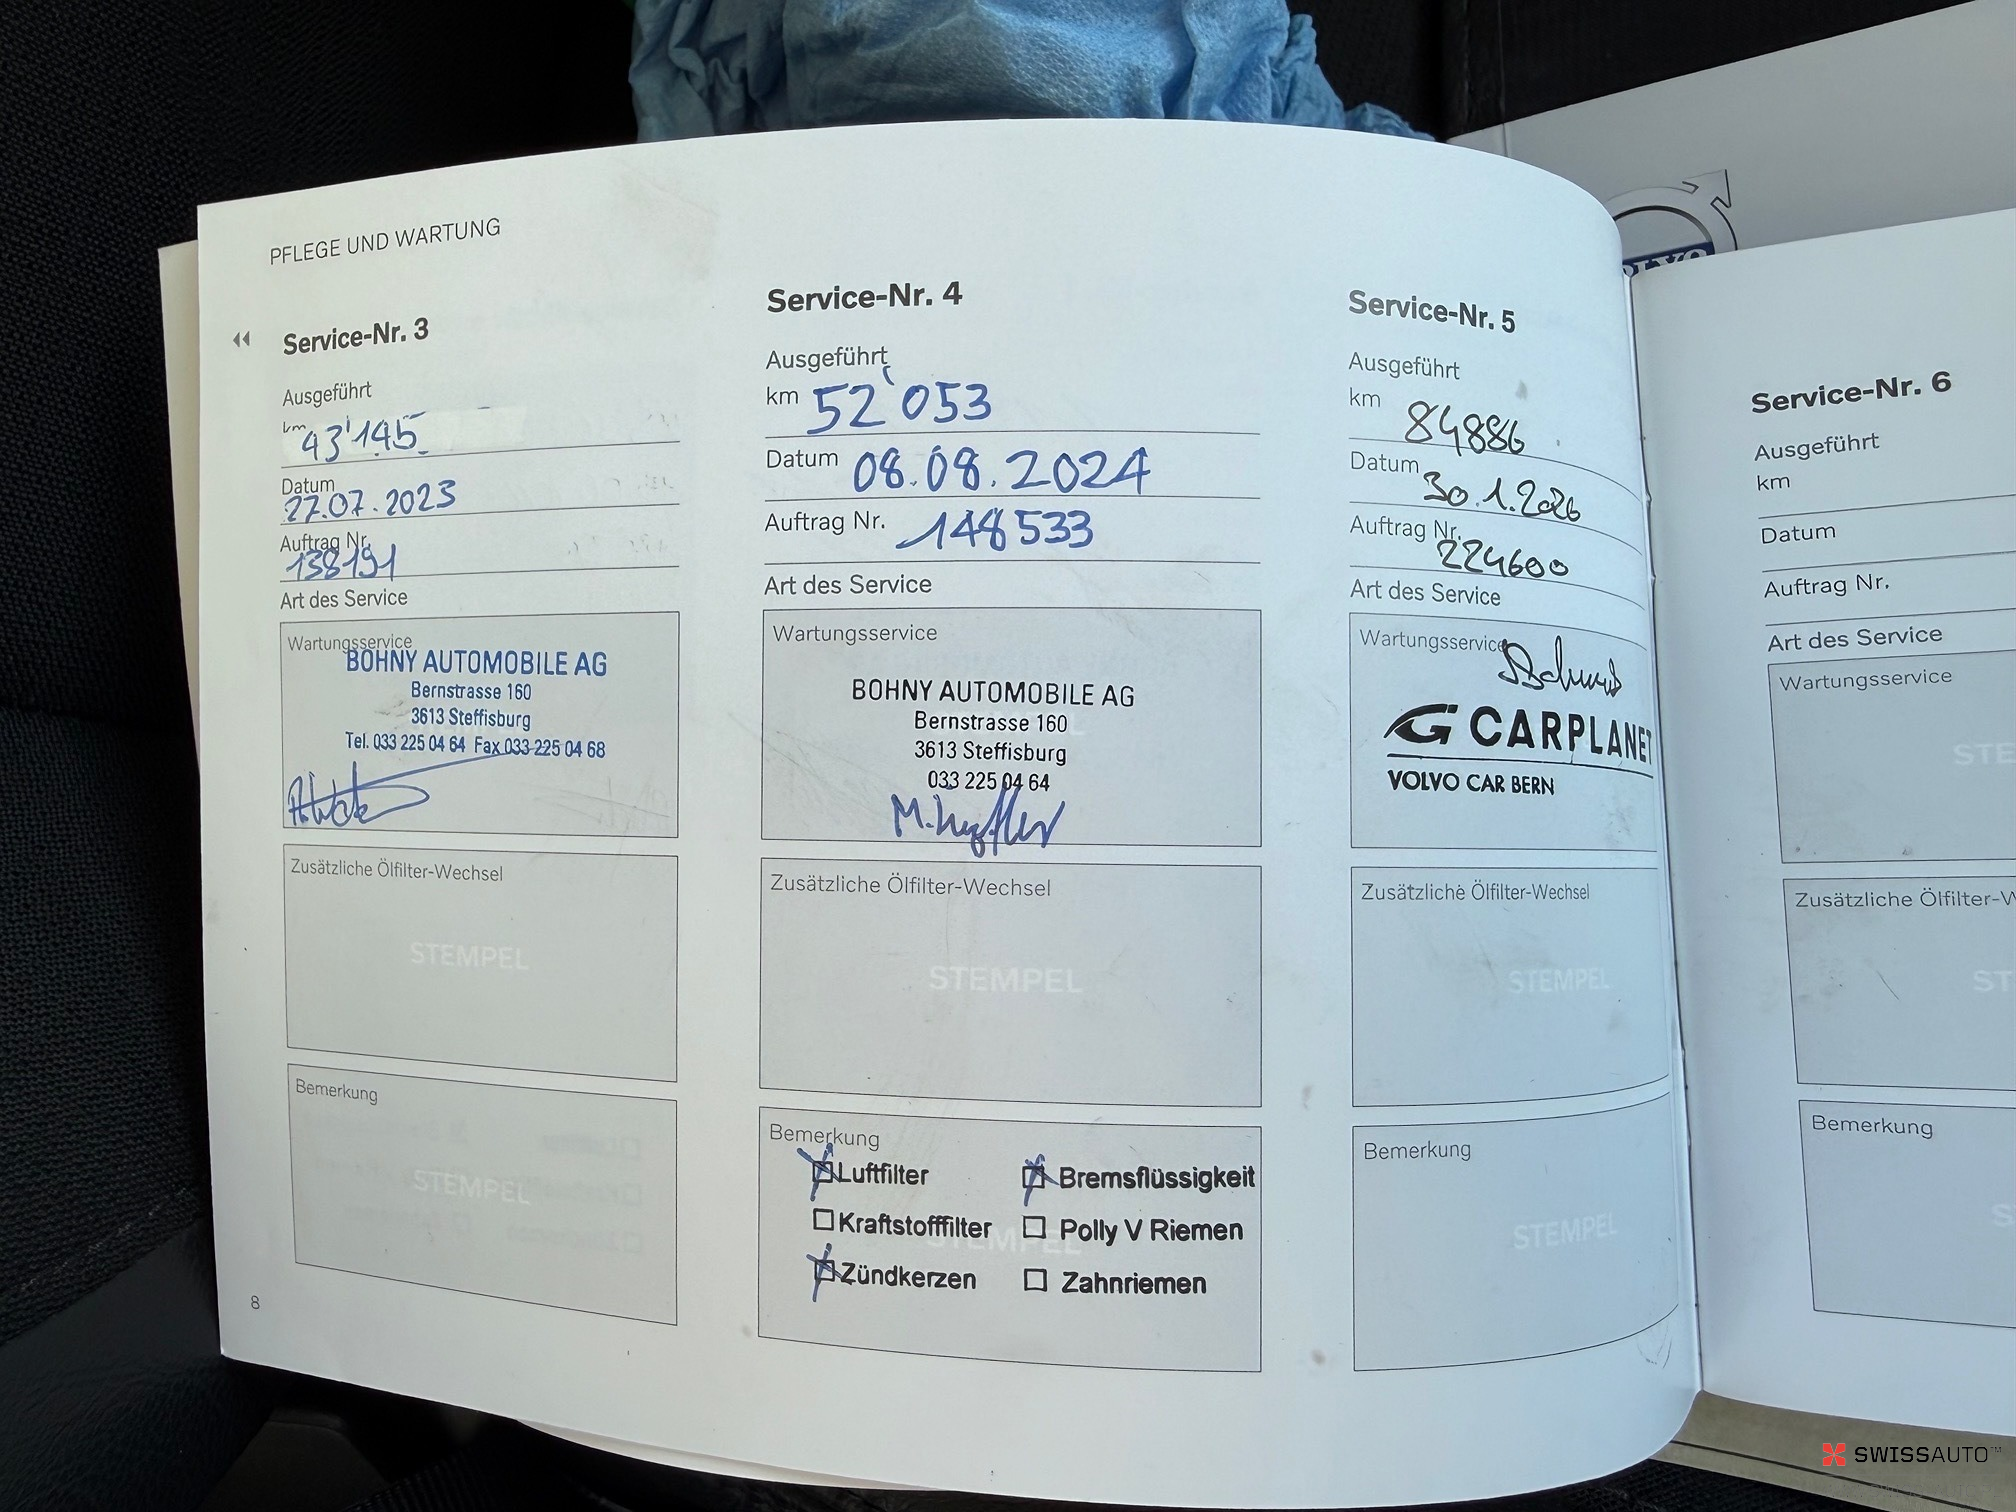 PFLEGE UND WARTUNG
Service-Nr. 3
Ausgeführt
km 43'145
Datum
27.07.2023
Auftrag Nr.
138191
Art des Service
Wartungsservice
BOHNY AUTOMOBILE AG
Bernstrasse 160
3613 Steffisburg
Tel. 033 225 04 64 Fax 033 225 04 68
Zusätzliche Ölfilter-Wechsel
STEMPEL
Bemerkung
STEMPEL
8
Service-Nr. 4
Ausgeführt
km 52'053
Datum 08.08.2024
Auftrag Nr. 148533
Art des Service
Wartungsservice
BOHNY AUTOMOBILE AG
Bernstrasse 160
3613 Steffisburg
033 225 04 64
Zusätzliche Ölfilter-Wechsel
STEMPEL
Bemerkung
Luftfilter Bremsflüssigkeit
Kraftstofffilter Polly V Riemen
STEMPEL
Zündkerzen Zahnriemen
Service-Nr. 5
Ausgeführt
km 84886
Datum 30.1.2026
Auftrag Nr.
224600
Art des Service
Wartungsservice
CARPLANET
VOLVO CAR BERN
Zusätzliche Ölfilter-Wechsel
STEMPEL
Bemerkung
STEMPEL
Service-Nr. 6
Ausgeführt
km
Datum
Auftrag Nr.
Art des Service
Wartungsservice
STE
Zusätzliche Ölfilter-W
ST
Bemerkung
S
SWISSAUTO™